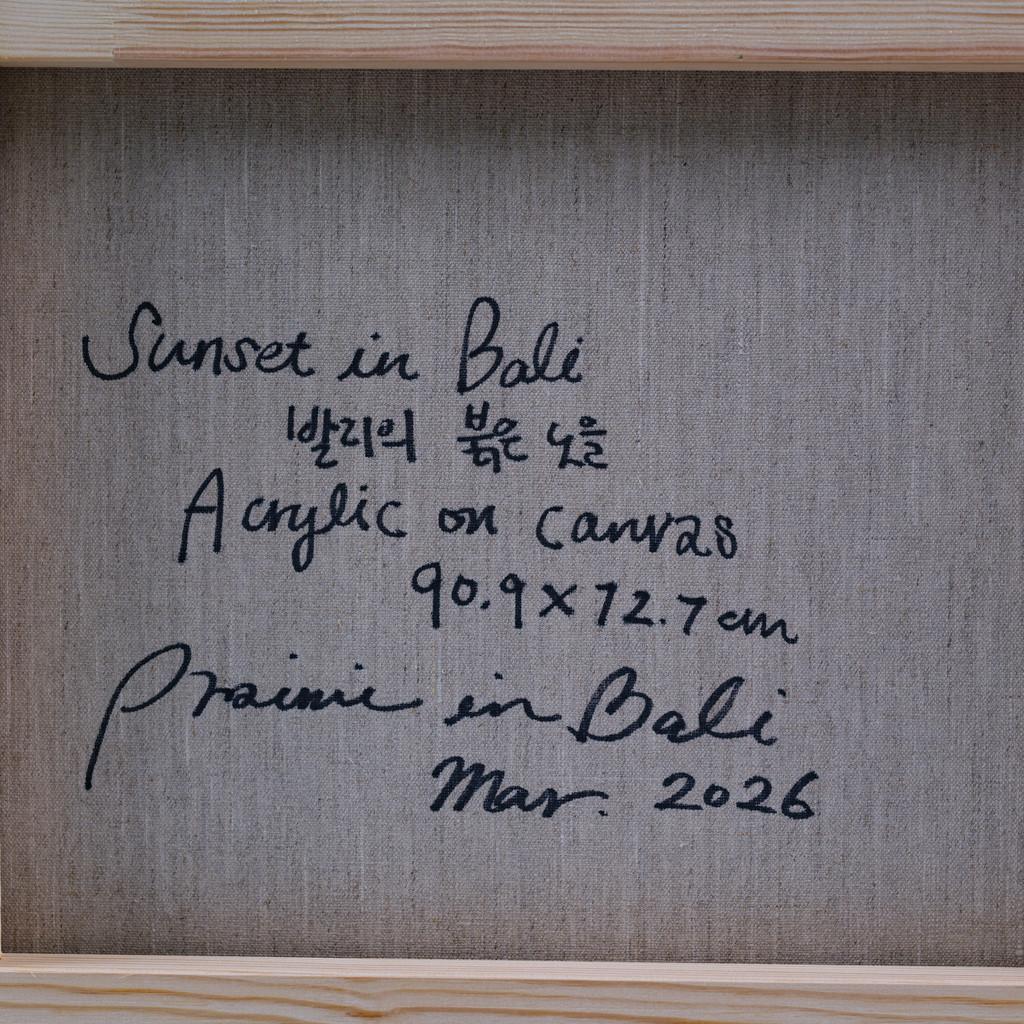 Sunset in Bali
발리의 붉은 노을
Acrylic on canvas
90.9 x 72.7 cm
Prairie in Bali
Mar. 2026